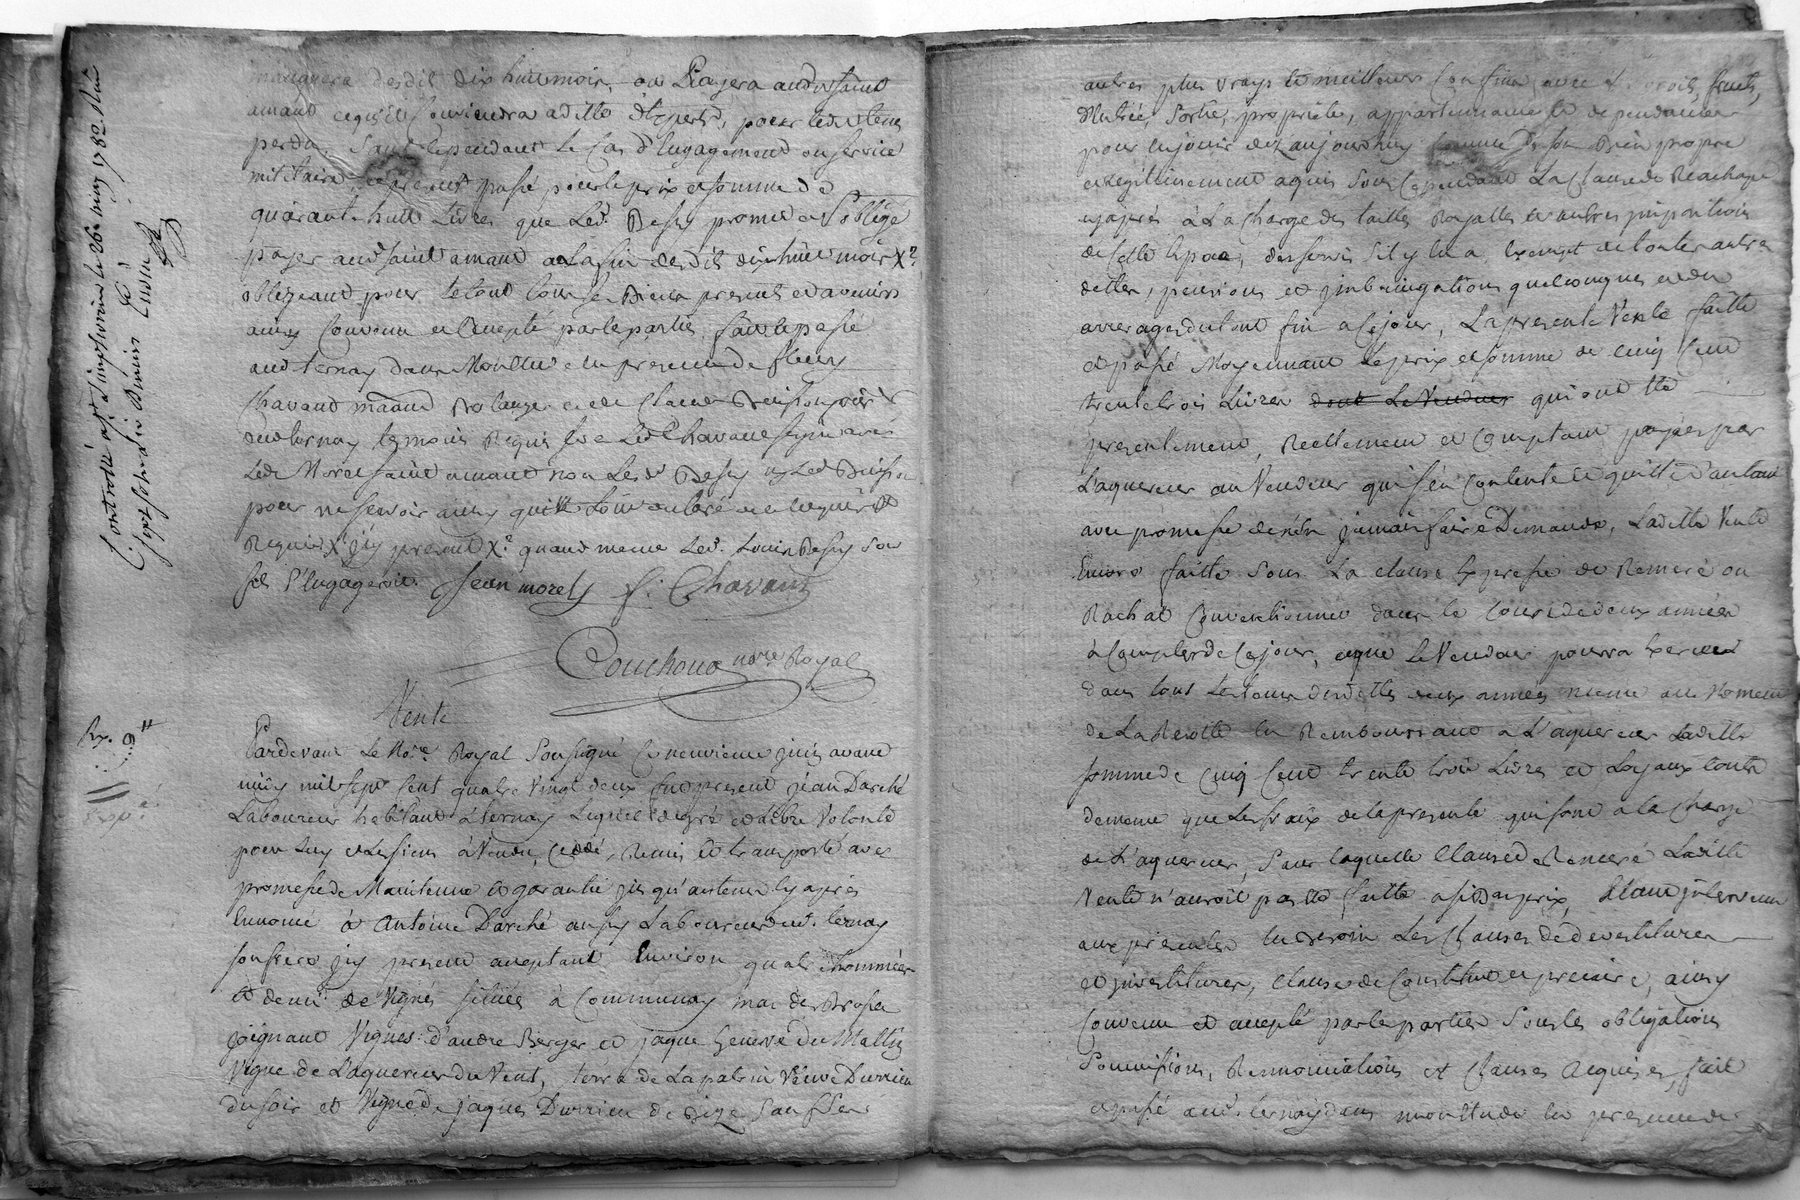 manquera desdit dix huit mois, ou Payera audit Saint
amant ce qu'ils Conviendra a ditte d'Experts, pour led. tems
perdu. Sauf cependant le Cas d'Engagement ou service
militaire, le présent passé pour le prix et somme de
quarante huit Livres que led. Besuy promet et s'oblige
payer aud. saint amant a la fin desdit dix huit mois X?
obligeant pour le tout Tous ses Biens presents et avenirs
ainsy Convenu et Accepté par le parties, fait et passé
aud ternay dans Mon Etude en presence de fleury
Chavant maître Bolanger et de Claude
dud ternay temoins Requis led Chavant signé avec
led Morel saint amant non led. Besuy ny led
pour ne scavoir ainsy qu'ils L'on declaré de ce enquis et
Requis X icy present X? quand meme led. Louis Besuy Son
fils S'Engageroit. Jean morel f. Chavant
Couchoud nore Royal
Controllé a St simphorien le 26. may 1782. Reçu
Sept sols six Deniers
Vente
Rx. 9
Exp. é
Pardevant Le No.re Royal Soussigné Ce neuvieme juin avant
midy mil sept Cent quatre Vingt deux fut present jean Darché
Laboureur habitant à ternay Lequel de gré et Libre Volonté
pour Luy et Les siens à Vendu, Ceddé, Remis et transporté avec
promesse de Maintenue et garantie jusqu'autems Cy après
Ennoncé à Antoine Darché aussy Laboureur dud. ternay
son frere icy present acceptant Environ quatre hommées
et demi de Vignes situées à Communay mas des Brosses
joignant Vignes d'andre Berger et jaque Geneve du Matin
Vigne de L'aquereur du Vent, terre de La
du soir et Vigne de jaques Durrieu de Bize Sauf Ses
autres plus vrays et meilleurs Confins, avec droits, fruits,
d'Entrée, Sortie, propriété, appartenances et dependances
pour en jouir dez aujourdhuy Comme de son Bien propre
et Legitimement aquis Sous Cependant La Clause de Reachapt
cy après à La Charge des tailles Royalles et autres impositions
de Cette Epoque, des servis s'il y en a, Exempt de toutes autres
dettes, pensions et jmbringations quelconques et des
arrerages du tout fin a Ce jour, La presente Vente faitte
et passé Moyennant Le prix et somme de Cinq Cent
trente trois Livres dont Le Vendeur qui ont été
presentement, Reellement et Comptant payées par
L'aquereur au Vendeur qui s'en Contente et quitte d'autant
avec promesse de n'en jamais faire Demande, Ladite Vente
Encore faitte Sous La clause Expresse de Remeré ou
Rachat Conventionnel dans le Cours de deux années
à Compter de Ce jour, et que le Vendeur pourra Exercer
dans tout Le cours desdittes deux années meme au Moment
de La Recolte En Remboursant a L'aquereur Ladite
somme de Cinq Cent trente trois Livres et Loyaux Couts
de meme que Les fraix de la presente qui sont a la Charge
de L'aquereur, Sans laquelle Clause de Remeré Ladite
Vente n'auroit pas été faitte a si Bas prix, Etant intervenu
aux presentes En Besoin Les Clauses de devestitures
et jnvestitures, Clauses de Constitut et precaire, ainsy
Convenu et accepté par le parties Sous les obligations
Soumissions, Rennonciations et Clauses Requises, fait
et passé aud. ternay dans mon Etude En presence de